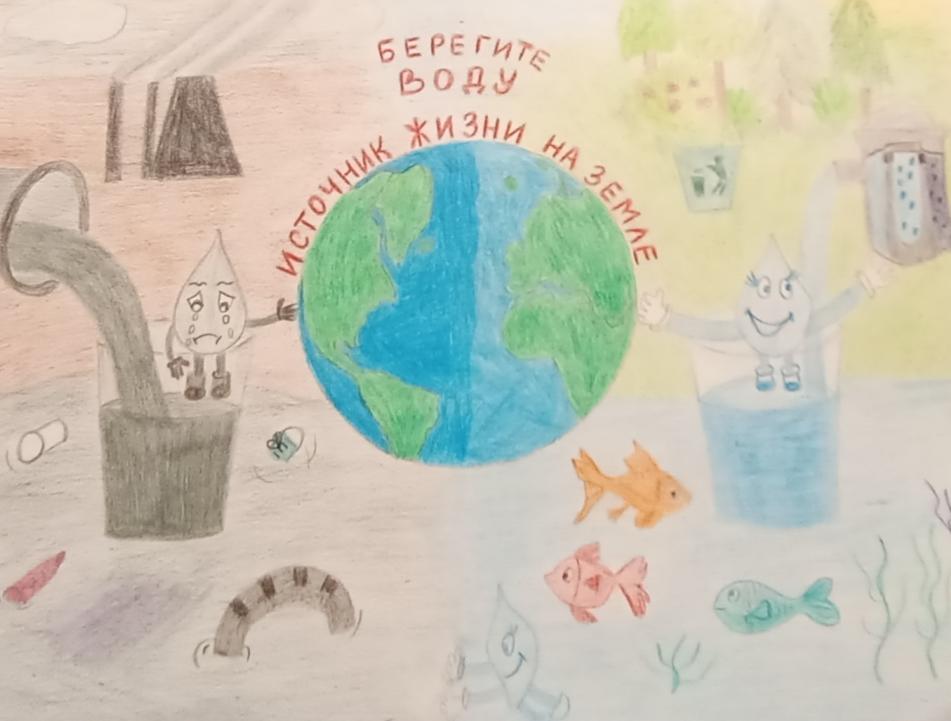 БЕРЕГИТЕ
ВОДУ
ИСТОЧНИК ЖИЗНИ НА ЗЕМЛЕ